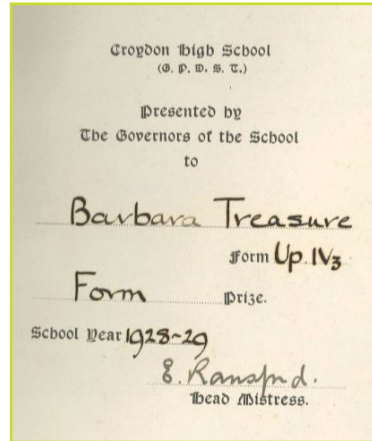 Croydon High School
(G. P. D. S. T.)
Presented by
The Governors of the School
to
Barbara Treasure
Form Up. IV3
Form Prize.
School Year 1928-29
E. Ransford.
Head Mistress.